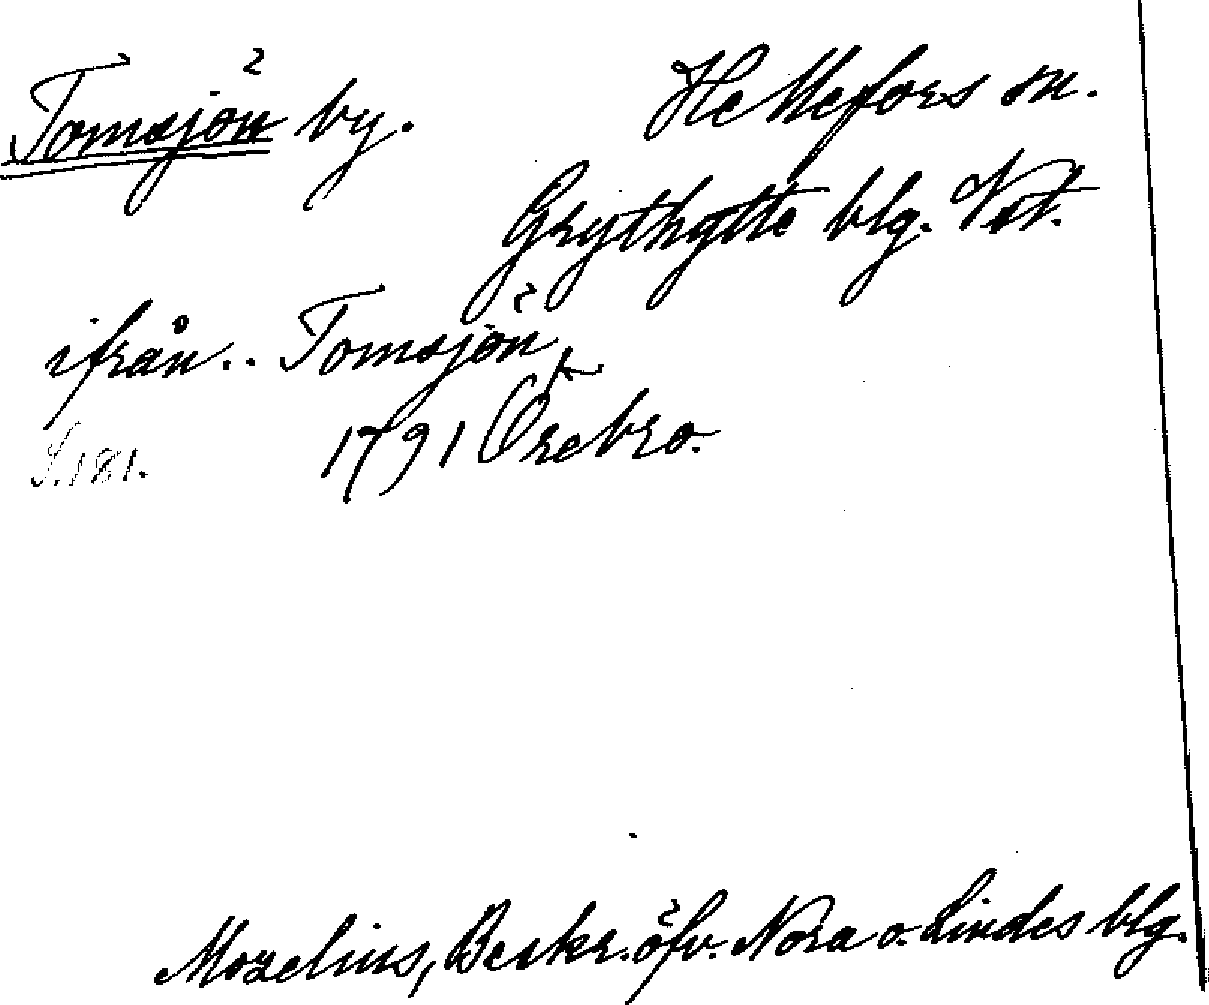 Tomsjön by. Hellefors sn.
Grythytte blg. Vst.
ifrån.. Tomsjön
S. 181. 1791 Örebro.
Mozelius, Beskr. öfv. Nora o. Lindes blg.